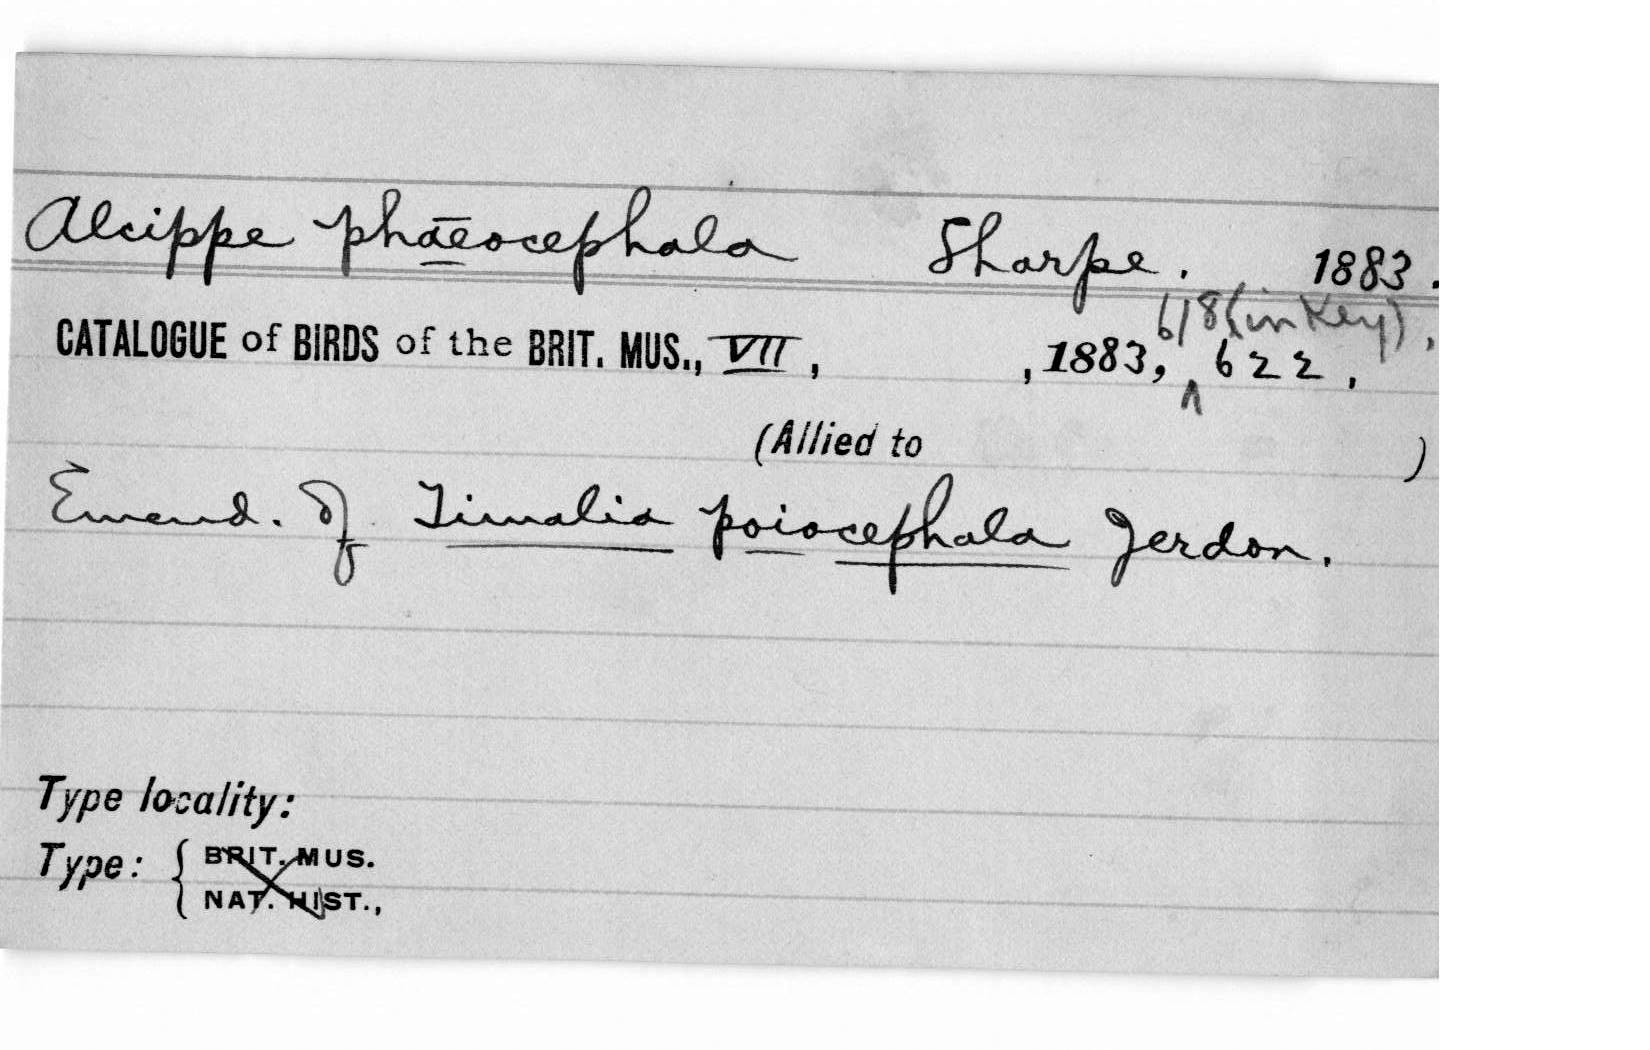 Alcippe phaeocephala Sharpe. 1883.
618 (in Key),
CATALOGUE of BIRDS of the BRIT. MUS., VII, , 1883, ^ 622,
(Allied to )
Emend. of Timalia poiocephala Jerdon.
Type locality:
Type: { BRIT. MUS.
NAT. HIST.,